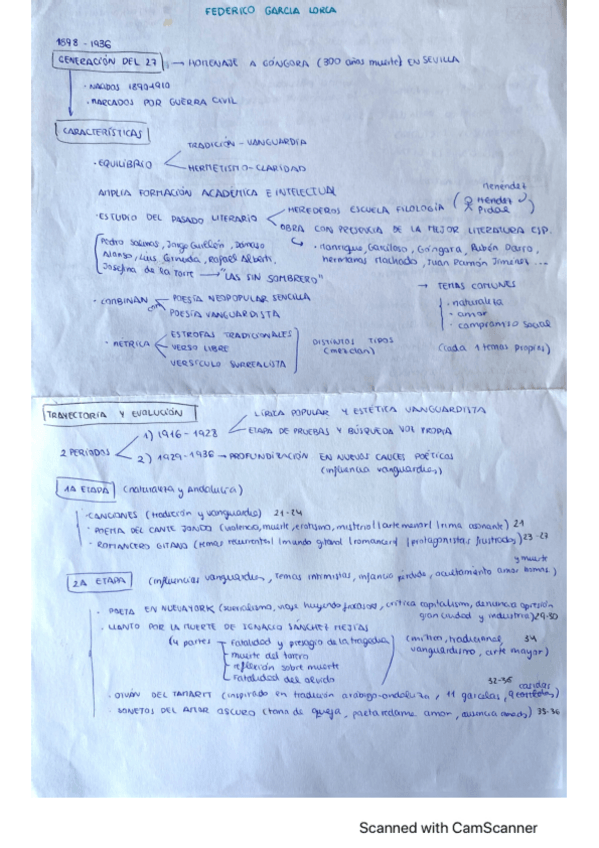 FEDERICO GARCIA LORCA
1898 - 1936
GENERACIÓN DEL 27 → HOMENAJE A GÓNGORA (300 años muerte) EN SEVILLA
· NACIDOS 1890-1910
· MARCADOS POR GUERRA CIVIL
CARACTERÍSTICAS
TRADICIÓN - VANGUARDIA
· EQUILIBRIO
HERMETISMO - CLARIDAD
AMPLIA FORMACIÓN ACADEMICA E INTELECTUAL
· ESTUDIO DEL PASADO LITERARIO
HEREDEROS ESCUELA FILOLOGÍA (Menéndez Pidal)
OBRA CON PRESENCIA DE LA MEJOR LITERATURA ESP.
· Manrique, Garcilaso, Góngora, Rubén Darío,
hermanos Machado, Juan Ramón Jiménez ...
Pedro Salinas, Jorge Guillén, Dámaso
Alonso, Luis Cernuda, Rafael Alberti,
Josefina de la Torre → "LAS SIN SOMBRERO"
→ TEMAS COMUNES
· naturaleza
· amor
· compromiso social
(cada 1 temas propios)
· COMBINAN con
POESÍA NEOPOPULAR SENCILLA
POESÍA VANGUARDISTA
· MÉTRICA
ESTROFAS TRADICIONALES
VERSO LIBRE
VERSÍCULO SURREALISTA
DISTINTOS TIPOS
(mezclan)
TRAYECTORIA Y EVOLUCIÓN
LÍRICA POPULAR Y ESTÉTICA VANGUARDISTA
2 PERÍODOS
1) 1916 - 1928
ETAPA DE PRUEBAS Y BÚSQUEDA VOZ PROPIA
2) 1929 - 1936 → PROFUNDIZACIÓN EN NUEVOS CAUCES POÉTICOS
(influencia vanguardias)
1A ETAPA (naturaleza y Andalucía)
· CANCIONES (tradición y vanguardia) 21-24
· POEMA DEL CANTE JONDO (violencia, muerte, erotismo, misterio/arte menor/rima asonante) 21
· ROMANCERO GITANO (temas recurrentes/mundo gitano/romances/protagonistas frustrados) 23-27
2A ETAPA (influencias vanguardias, temas intimistas, infancia perdida, ocultamiento amor homos.)
y muerte
· POETA EN NUEVA YORK (surrealismo, viaje huyendo fracasos, crítica capitalism, denuncia opresión
gran ciudad y industria) 29-30
· LLANTO POR LA MUERTE DE IGNACIO SÁNCHEZ MEJÍAS
(4 partes
Fatalidad y presagio de la tragedia
muerte del torero
reflexión sobre muerte
Fatalidad del olvido
tradicional, 34
vanguardismo, arte mayor)
32-36
· DIVÁN DEL TAMARIT (inspirado en tradición arábigo-andaluza, 11 gacelas, 9 casidas)
· SONETOS DEL AMOR OSCURO (tono de queja, poeta reclama amor, ausencia amado) 35-36
Scanned with CamScanner